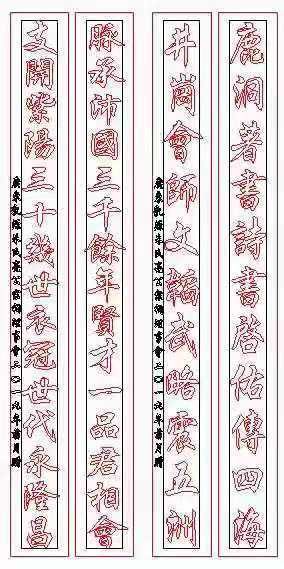 鹿洞著書詩書啓佑傳四海
井崗會師文韜武略震五洲
廣東乳源朱氏宗祠理事會二〇一九年月贈
脈承沛國三千餘年賢才一品君相會
支開紫陽三十幾世衣冠世代永隆昌
廣東乳源朱氏宗祠理事會二〇一九年月贈